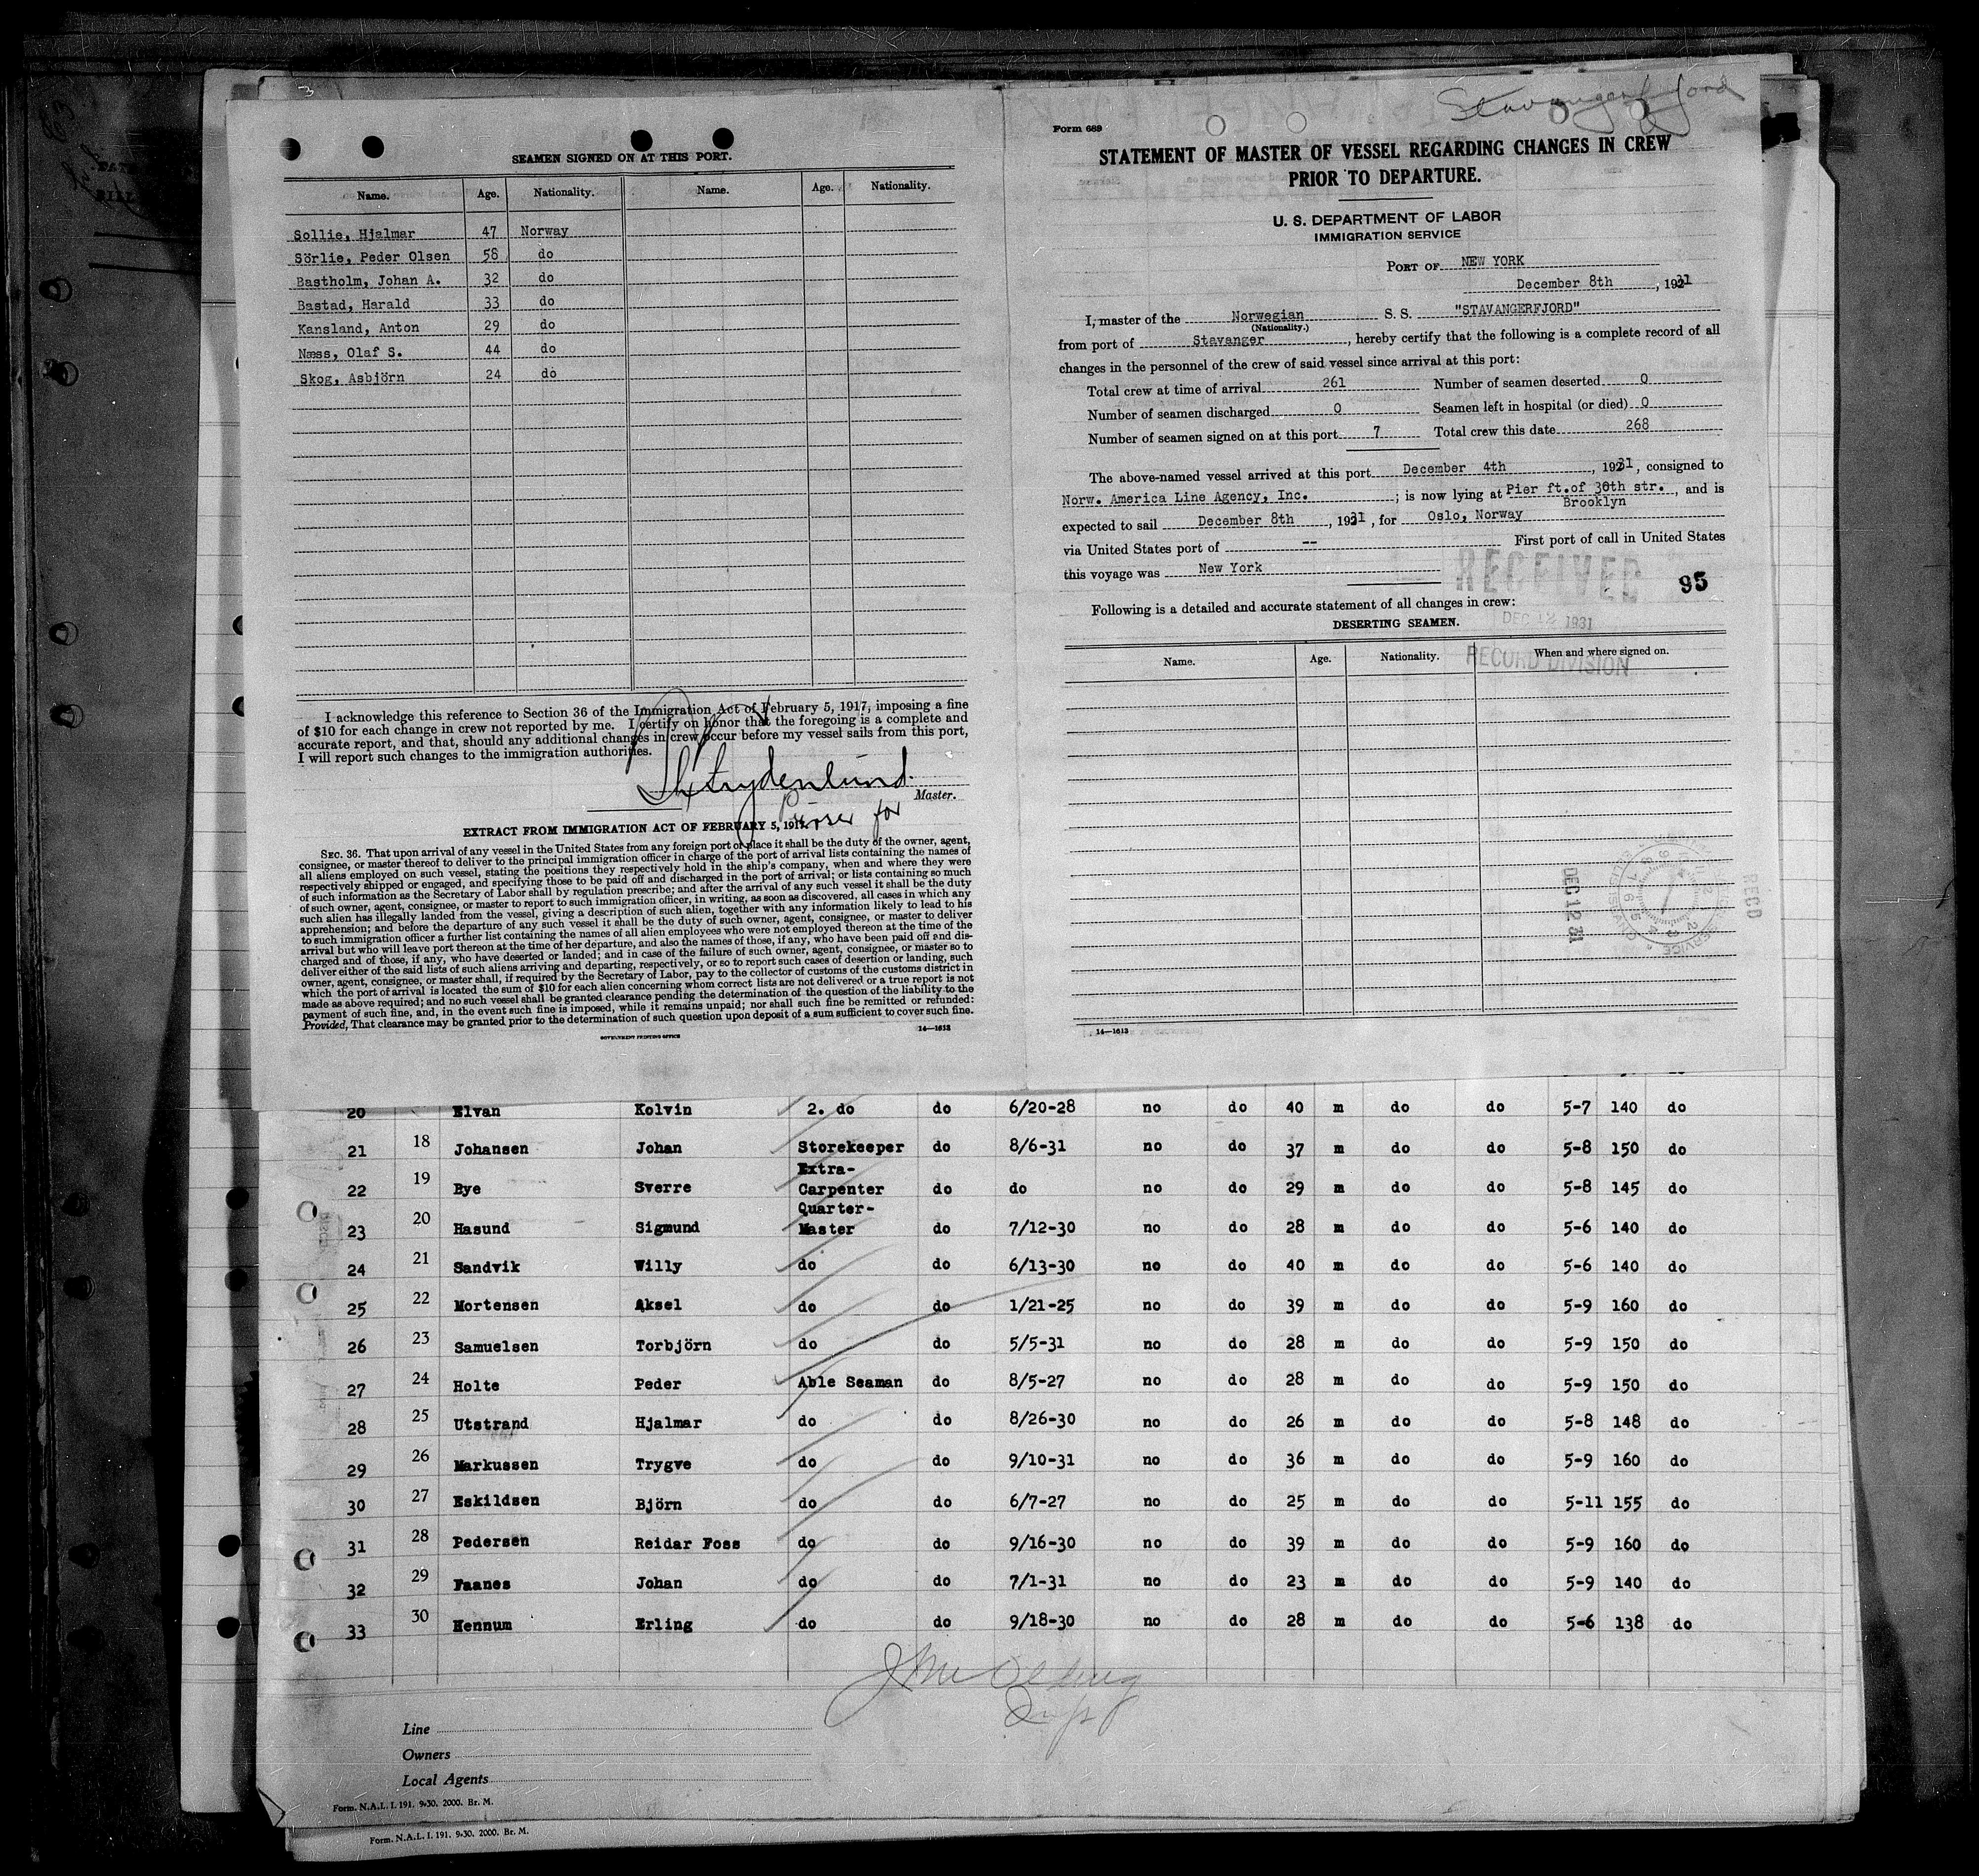 SEAMEN SIGNED ON AT THIS PORT.
Name. Age. Nationality. Name. Age. Nationality.
Sollie, Hjalmar 47 Norway
Sörlie, Peder Olsen 58 do
Bastholm, Johan A. 32 do
Bastad, Harald 33 do
Kansland, Anton 29 do
Næss, Olaf S. 44 do
Skog, Asbjörn 24 do
I acknowledge this reference to Section 36 of the Immigration Act of February 5, 1917, imposing a fine
of $10 for each change in crew not reported by me. I certify on honor that the foregoing is a complete and
accurate report, and that, should any additional changes in crew occur before my vessel sails from this port,
I will report such changes to the immigration authorities.
Master.
Purser for
EXTRACT FROM IMMIGRATION ACT OF FEBRUARY 5, 1917.
SEC. 36. That upon arrival of any vessel in the United States from any foreign port or place it shall be the duty of the owner, agent,
consignee, or master thereof to deliver to the principal immigration officer in charge of the port of arrival lists containing the names of
all aliens employed on such vessel, stating the positions they respectively hold in the ship's company, when and where they were
respectively shipped or engaged, and specifying those to be paid off and discharged in the port of arrival; or lists containing so much
of such information as the Secretary of Labor shall by regulation prescribe; and after the arrival of any such vessel it shall be the duty
of such owner, agent, consignee, or master to report to such immigration officer, in writing, as soon as discovered, all cases in which any
such alien has illegally landed from the vessel, giving a description of such alien, together with any information likely to lead to his
apprehension; and before the departure of any such vessel it shall be the duty of such owner, agent, consignee, or master to deliver
to such immigration officer a further list containing the names of all alien employees who were not employed thereon at the time of the
arrival but who will leave port thereon at the time of her departure, and also the names of those, if any, who have been paid off and dis-
charged and of those, if any, who have deserted or landed; and in case of the failure of such owner, agent, consignee, or master so to
deliver either of the said lists of such aliens arriving and departing, respectively, or so to report such cases of desertion or landing, such
owner, agent, consignee, or master shall, if required by the Secretary of Labor, pay to the collector of customs of the customs district in
which the port of arrival is located the sum of $10 for each alien concerning whom correct lists are not delivered or a true report is not
made as above required; and no such vessel shall be granted clearance pending the determination of the question of the liability to the
payment of such fine, and, in the event such fine is imposed, while it remains unpaid; nor shall such fine be remitted or refunded:
Provided, That clearance may be granted prior to the determination of such question upon deposit of a sum sufficient to cover such fine.
GOVERNMENT PRINTING OFFICE 14—1613
Stavangerfjord
Form 689
STATEMENT OF MASTER OF VESSEL REGARDING CHANGES IN CREW
PRIOR TO DEPARTURE.
U. S. DEPARTMENT OF LABOR
IMMIGRATION SERVICE
PORT OF NEW YORK
December 8th, 1931
I, master of the Norwegian S. S. "STAVANGERFJORD"
(Nationality.)
from port of Stavanger, hereby certify that the following is a complete record of all
changes in the personnel of the crew of said vessel since arrival at this port:
Total crew at time of arrival 261 Number of seamen deserted 0
Number of seamen discharged 0 Seamen left in hospital (or died) 0
Number of seamen signed on at this port 7 Total crew this date 268
The above-named vessel arrived at this port December 4th, 1931, consigned to
Norw. America Line Agency, Inc.; is now lying at Pier ft.of 30th str. Brooklyn, and is
expected to sail December 8th, 1931, for Oslo, Norway
via United States port of -- First port of call in United States
this voyage was New York
RECEIVED
95
Following is a detailed and accurate statement of all changes in crew:
DEC 12 1931
DESERTING SEAMEN.
RECORD DIVISION
Name. Age. Nationality. When and where signed on.
DEC 12 31
REC'D
14—1613
20 Elvan Kolvin 2. do do 6/20-28 no do 40 m do do 5-7 140 do
21 18 Johansen Johan Storekeeper do 8/6-31 no do 37 m do do 5-8 150 do
22 19 Bye Sverre Extra-Carpenter do do no do 29 m do do 5-8 145 do
23 20 Hasund Sigmund Quarter-Master do 7/12-30 no do 28 m do do 5-6 140 do
24 21 Sandvik Willy do do 6/13-30 no do 40 m do do 5-6 140 do
25 22 Mortensen Aksel do do 1/21-25 no do 39 m do do 5-9 160 do
26 23 Samuelsen Torbjörn do do 5/5-31 no do 28 m do do 5-9 150 do
27 24 Holte Peder Able Seaman do 8/5-27 no do 28 m do do 5-9 150 do
28 25 Utstrand Hjalmar do do 8/26-30 no do 26 m do do 5-8 148 do
29 26 Markussen Trygve do do 9/10-31 no do 36 m do do 5-9 160 do
30 27 Eskildsen Björn do do 6/7-27 no do 25 m do do 5-11 155 do
31 28 Pedersen Reidar Foss do do 9/16-30 no do 39 m do do 5-9 160 do
32 29 Faanes Johan do do 7/1-31 no do 23 m do do 5-9 140 do
33 30 Hennum Erling do do 9/18-30 no do 28 m do do 5-6 138 do
Line
Owners
Local Agents
Form. N.A.L. I. 191. 9-30. 2000. Br. M.
Form. N.A.L. I. 191. 9-30. 2000. Br. M.